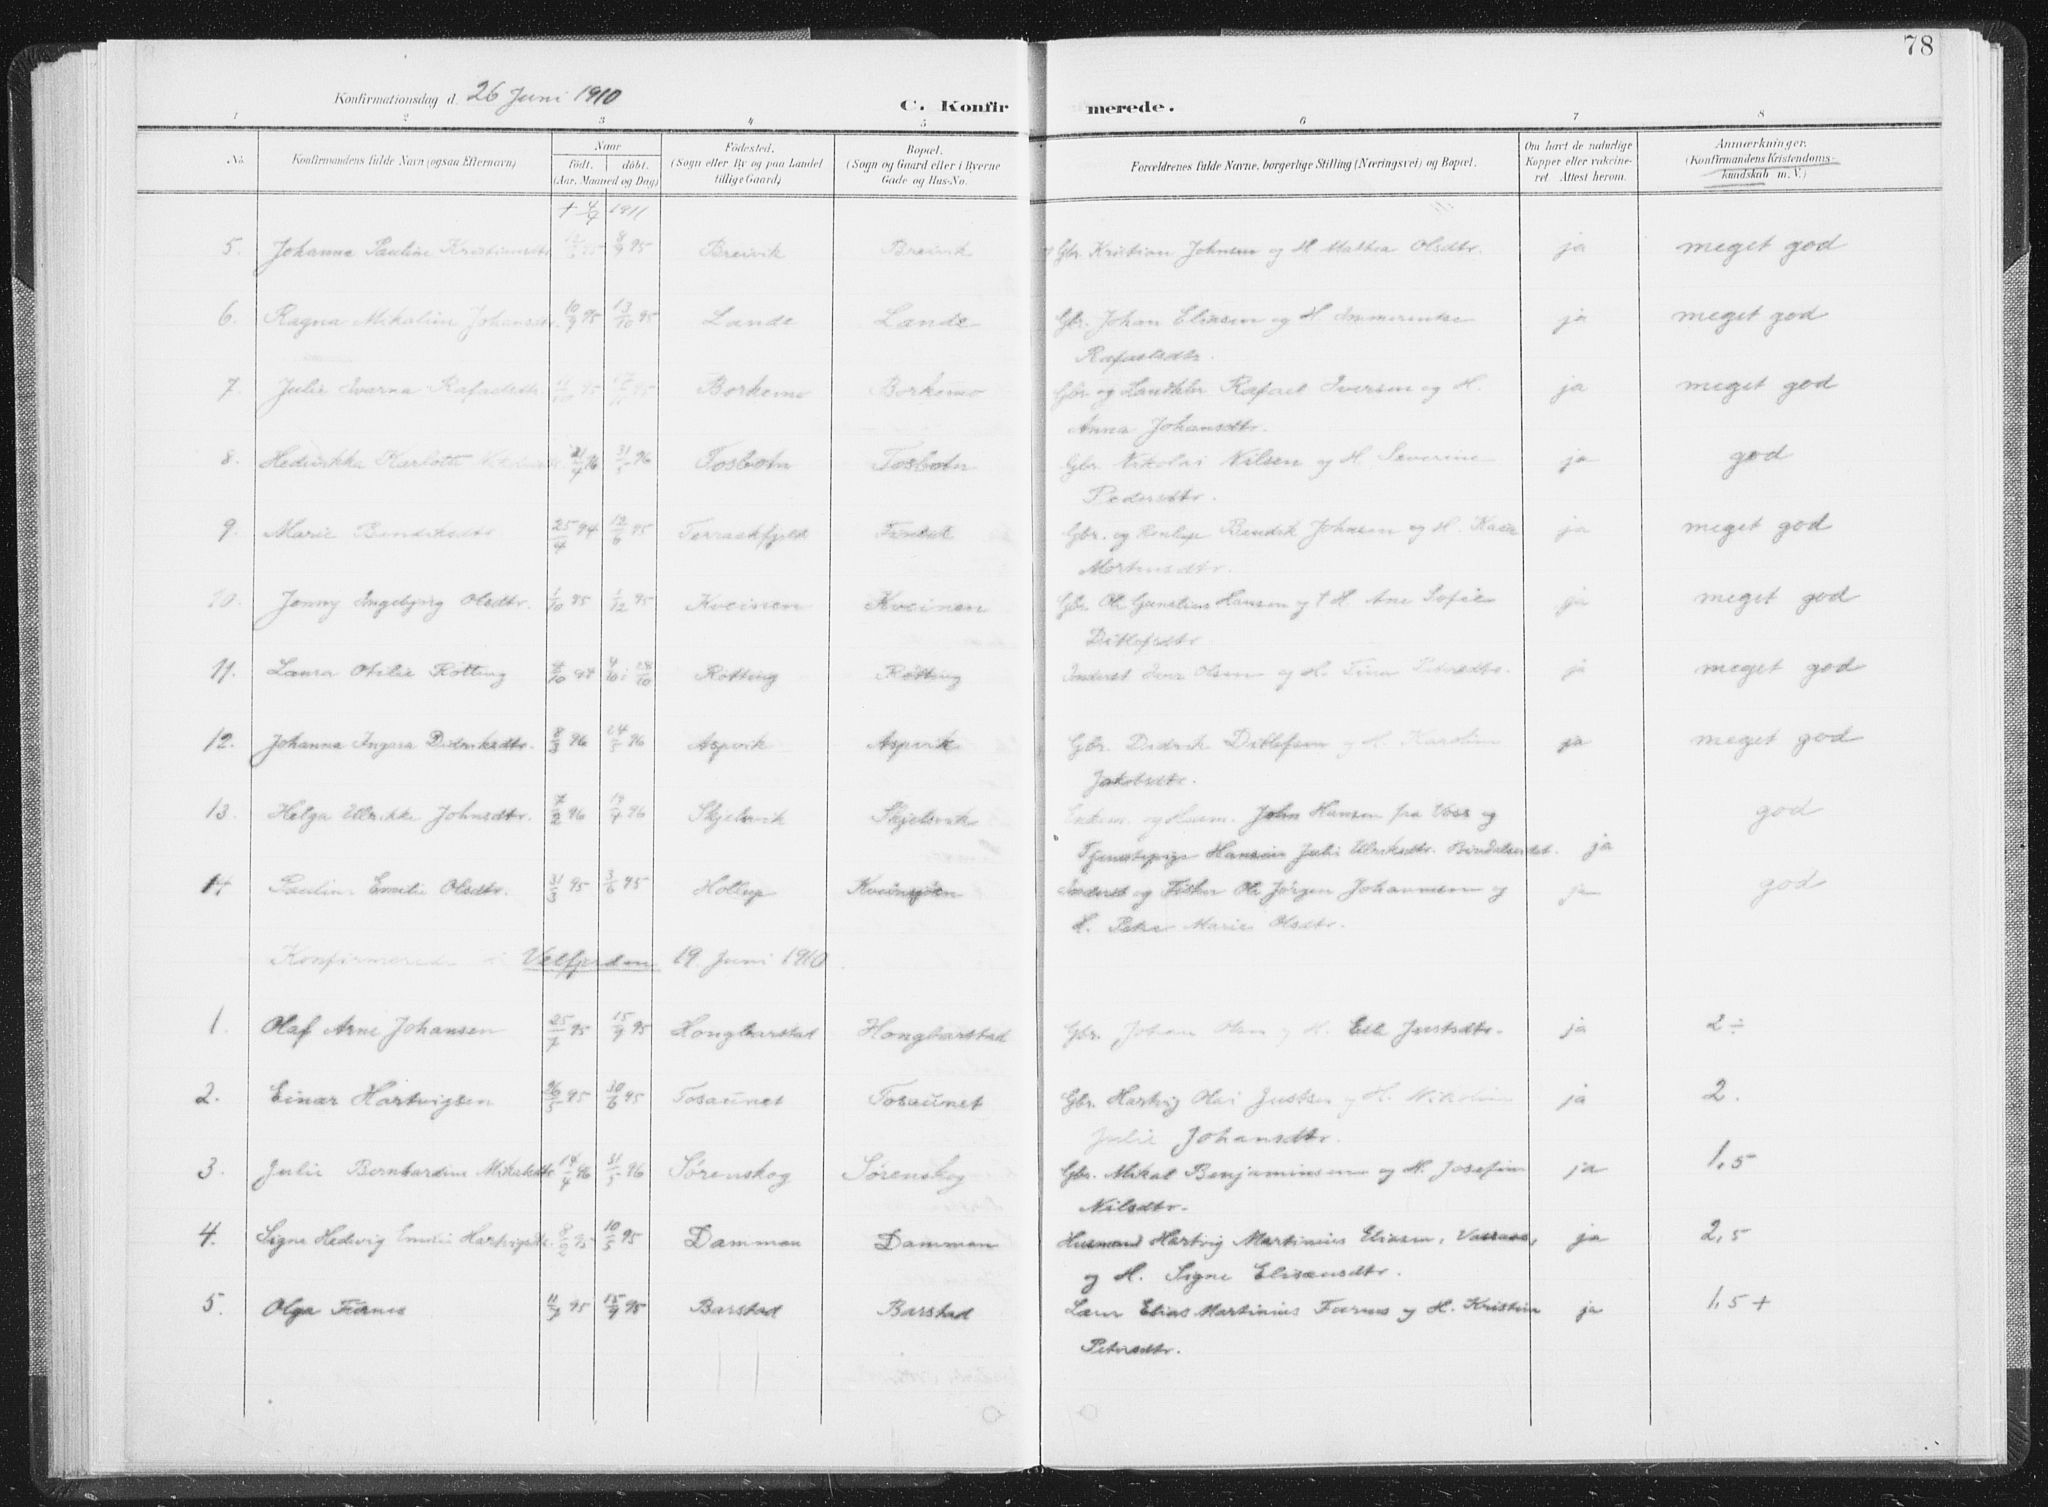 78
Konfirmationsdag d. 26 Juni 1910 C. Konfirmerede.
1 2 3 4 5 6 7 8
No. Konfirmandens fulde Navn (ogsaa Efternavn) Naar født. døbt. (Aar, Maaned og Dag) Fødested. (Sogn eller By og paa Landet tillige Gaard) Bopæl. (Sogn og Gaard eller i Byerne Gade og Hus-No. Forældrenes fulde Navne, borgerlige Stilling (Næringsvei) og Bopæl. Om havt de naturlige Kopper eller vakcineret. Attest herom. Anmærkninger. (Konfirmandens Kristendomskundskab m. V.)
+ 4/7 1911
5. Johanna Pauline Kristiansdtr 95 8/9 95 Breivik Breivik Gbr. Kristian Johnsen og H. Mathea Olsdtr. ja meget god
6. Ragna Mikaline Johansdtr. 10/9 95 13/10 95 Lande Lande Gbr. Johan Eliasen og H. Immerentse
Rafaelsdtr. ja meget god
7. Julie Ivarna Rafaelsdtr. 11/10 95 95 Borkemo Borkemo Gbr. og Landhdlr Rafael Iversen og H.
Anna Johansdtr. ja meget god
8. Hedvikka Karlotte 21/4 96 31/5 96 Tosbotn Tosbotn Gbr. Nikolai Nilsen og H. Severine
Pedersdtr. ja god
9. Marie Bendiksdtr 25/4 94 12/6 95 Terraakfjeld Gbr. og Bendik Johnsen og H.
Mortensdtr. ja meget god
10. Jenny Ingebjørg Olsdtr. 1/10 95 1/12 95 Kveinen Kveinen Gbr. Ole Hansen og † H. Ane Sofie
Ditlefsdtr. ja meget god
11. Laura Otilie Røtting 4/10 94 Røtting Røtting Inderst Jens Olsen og H. Tina Petersdtr. ja meget god
12. Johanna Ingara Didriksdtr. 8/3 96 24/5 96 Aspvik Aspvik Gbr. Didrik Ditlefsen og H. Karoline
Jakobsdtr. ja meget god
13. Helga Ulrikke Johnsdtr. 7/2 96 19/7 96 Skjelsvik Skjelsvik John Hansen fra Voss og
Tjenestepige Julie Ulriksdtr. Bindalseidet. ja god
14. Pauline Emelie Olsdtr. 31/3 95 3/6 95 Holtup Kveinsjøen Inderst og Fisker Ole Jørgen Johannesen og
H. Petra Marie Olsdtr. ja god
Konfirmerede i Velfjorden 19. Juni 1910.
1. Olaf Arne Johansen 25/7 95 15/9 95 Hongbarstad Hongbarstad Gbr. Johan Olsen og H. Elli Justsdtr. ja 2÷
2. Einar Hartvigsen 26/5 95 30/6 95 Tosaunet Tosaunet Gbr. Hartvig Olai Justsen og H. Nikoline
Julie Johansdtr. ja 2.
3. Julie Bernhardine Mikalsdtr 14/4 96 31/5 96 Sørenskog Sørenskog Gbr. Mikal Benjaminsen og H. Josefine
Nilsdtr. ja 1,5
4. Signe Hedevig Emelie Hartvigsdtr. 8/2 95 10/5 95 Dammen Dammen Husmand Hartvig Martinius Eliasen, Vassaas,
og H. Signe Elisæusdtr. ja 2,5
5. Olga Farnes 11/7 95 15/9 95 Barstad Barstad Lærer Elias Martinius Farnes og H. Kristine
Petersdtr. ja 1,5+